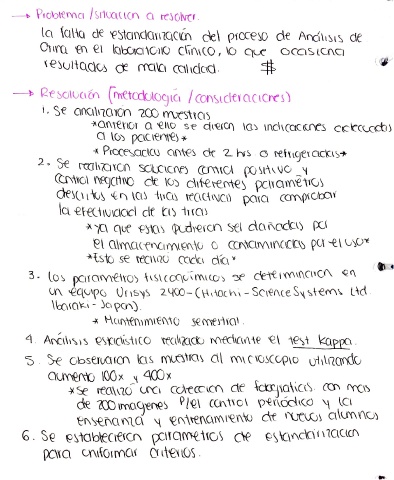 → Problema / situación a resolver.
La falta de estandarización del proceso de Análisis de
Orina en el laboratorio clínico, lo que ocasiona
resultados de mala calidad.
→ Resolución (metodología / consideraciones)
1. Se analizaron 200 muestras
*anterior a ello se dieron las indicaciones adecuadas
a los pacientes*
*Procesadas antes de 2 hrs o refrigeradas*
2. Se realizaron soluciones control positivo y
control negativo de los diferentes parámetros
descritos en las tiras reactivas para comprobar
la efectividad de las tiras
*ya que estas pudieron ser dañadas por
el almacenamiento o contaminadas por el uso*
*Esto se realizó cada día*
3. Los parámetros fisicoquímicos se determinaron en
un equipo Urisys 2400-(Hitachi-Science Systems Ltd.
Ibaraki-Japon).
* Mantenimiento semestral.
4. Análisis estadístico realizado mediante el test kappa.
5. Se observaron las muestras al microscopio utilizando
aumento 100x y 400x
*Se realizó una colección de fotografías con más
de 200 imagenes p/el control periódico y la
enseñanza y entrenamiento de nuevos alumnos
6. Se establecieron parámetros de estandarización
para uniformar criterios.